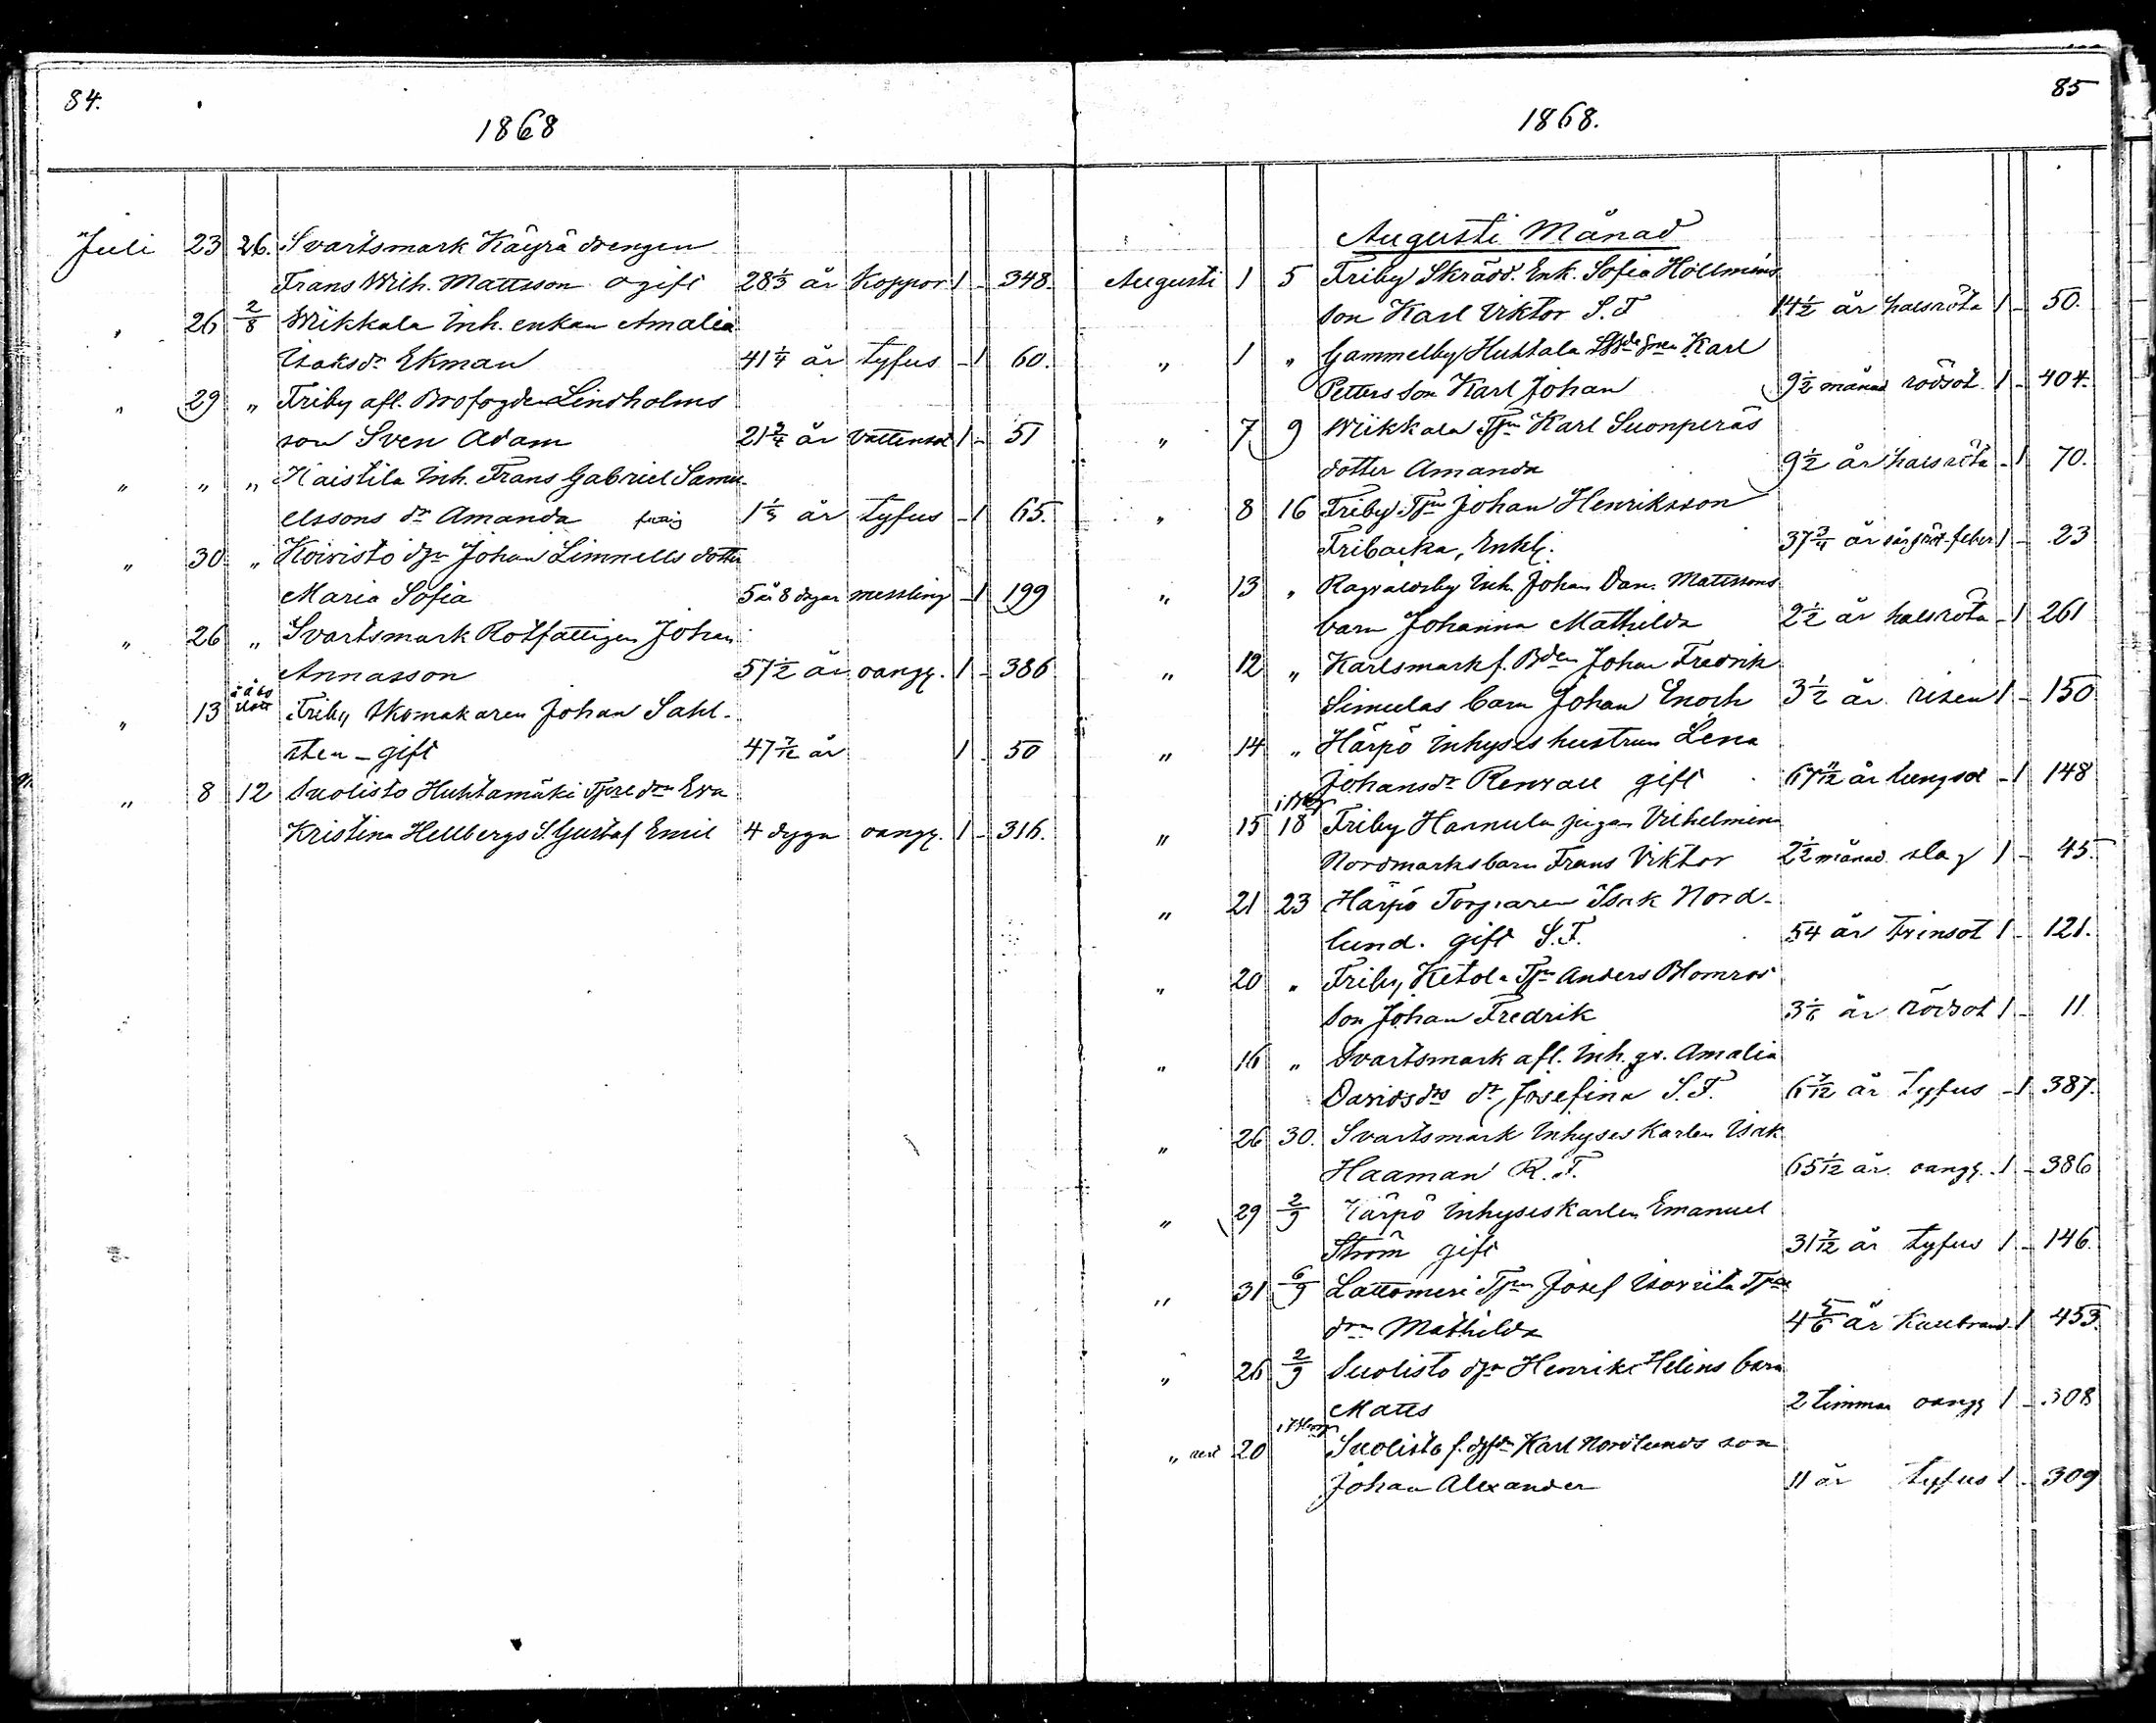 84.
1868
Juli 23 26. Svartsmark Käyrä drengen
Frans Wilh. Mattsson ogift 28 1/3 år Koppor 1 - 348.
" 26 2/8 Wiikkala Inh. enkan Amalia
Isaksdr Ekman 41 1/4 år tyfus - 1 60.
" 29 " Friby afl. Brofogden Lindholms
son Sven Adam 21 3/4 år Vattensot 1 - 51
" " " Haistila Inh. Frans Gabriel Samu-
elssons dr Amanda 1 1/3 år tyfus - 1 65.
" 30 " Koivisto dgn Johan Limnells dotter
Maria Sofia 5 år 8 dagar messling - 1 199
" 26 " Svartsmark Rotfattigen Johan
Annasson 57 1/2 år oangg. 1 - 386
" 13 i Åbo slott Friby Skomakaren Johan Sahl-
sten - gift 47 7/12 år 1 - 50
" 8 12 Suolisto Huhtamäki Tjere drn Eva
Kristina Hellbergs S. Gustaf Emil 4 dygn oangg. 1 - 316.
85
1868.
Augusti Månad
Augusti 1 5 Friby Skrädd. Enk. Sofia Hollméns
son Karl Viktor S. F 14 1/2 år halsröta 1 - 50.
" 1 " Gammelby Huhtala Karl
Petters son Karl Johan 9 1/2 månad rödsot 1 - 404.
" 7 9 Wiikkala Tprn Karl Suonperäs
dotter Amanda 9 1/2 år halsröta - 1 70.
" 8 16 Friby Tprn Johan Henriksson
Fribacka, Enkl. 37 3/4 år feber 1 - 23
" 13 " Ragvaldsby Inh. Johan Dan. Mattssons
barn Johanna Mathilda 2 1/2 år halsröta - 1 261
" 12 " Karlsmark f. Bden Johan Fredrik
Simulas barn Johan Enoch 3 1/2 år risen 1 - 150
" 14 " Härpö Inhyses hustrun Lena
Johansdr Renvall gift 67 11/12 år lungsot - 1 148
" 15 18 Friby Hannula pigan Vilhelmina
Nordmarks barn Frans Viktor 2 1/2 månad slag 1 - 45.
" 21 23 Härpö Torparen Isak Nord-
lund. gift S.F. 54 år Trinsot 1 - 121.
" 20 " Friby Ketola Tprn Anders Blomros
son Johan Fredrik 3 1/6 år rödsot 1 - 11
" 16 " Svartsmark afl. Inh. gr. Amalia
Davidsdrs dr Josefina S.F. 6 7/12 år tyfus - 1 387.
" 26 30. Svartsmark Inhyseskarlen Isak
Haaman R.F. 65 1/12 år oangg. 1 - 386
" 29 2/9 Härpö Inhyseskarlen Emanuel
Ström gift 31 7/12 år tyfus 1 - 146.
" 31 6/9 Lattomeri Tprn Josef Isoviita
drn Mathilda 4 5/6 år Kallbrand - 1 453.
" 26 2/9 Suolisto dgn Henrik Helins barn
Matts 2 timmar oangg 1 - 308
" 20 Suolisto f. Karl Nordlunds son
Johan Alexander 11 år tyfus 1 - 309